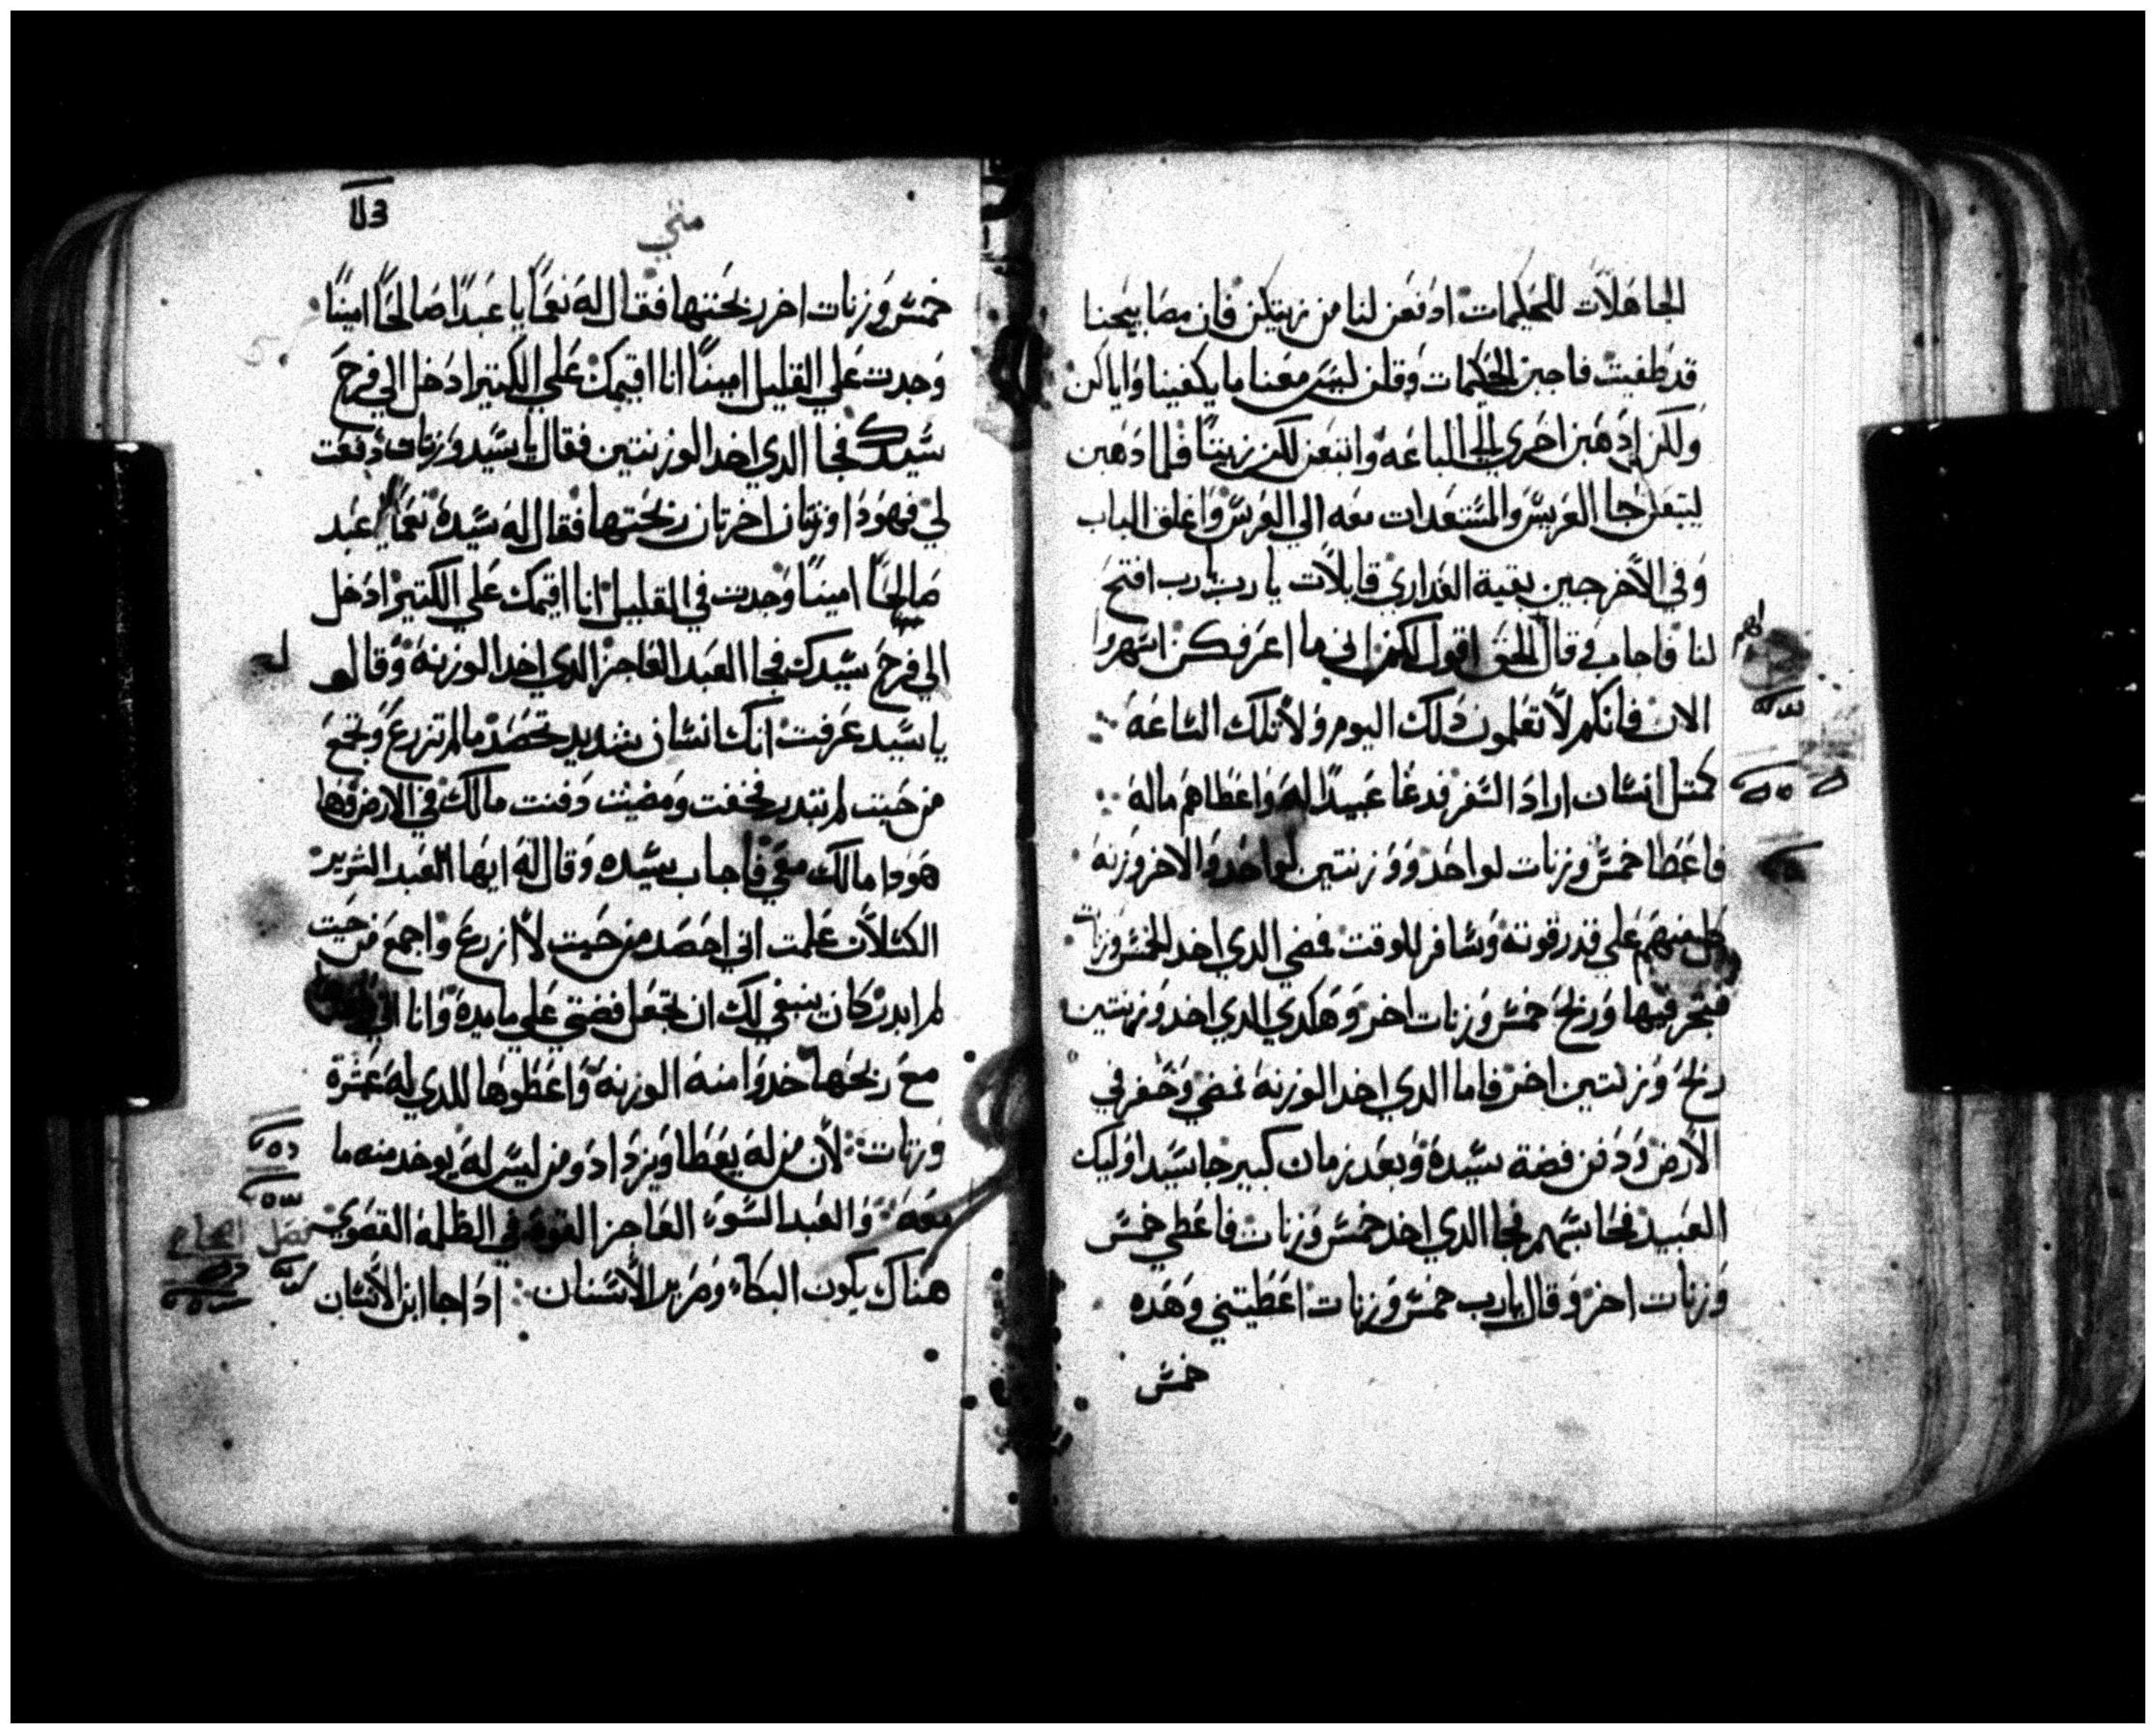 الجاهلات للحكيمات ادفعن لنا من زيتكن فان مصابيحنا
قد طفيت فاجبن الحكيمات وقلن ليس معنا ما يكفينا واياكن
ولكن اذهبن احري الي الباعه وابتعن لكن زيتا فلما دهبن
ليتبعن جا العريس والمستعدات معه الي العرس واغلق الباب
وفي الاخر جين بقية العداري قايلات يا رب يا رب افتح
لنا فاجاب وقال الحق اقول لكن اني ما اعرفكن اسهروا
الان فانكم لا تعلمون دلك اليوم ولا تلك الساعه
كمتل انسان اراد السفر فدعا عبيدا له واعطاهم ماله
فاعطا خمس وزنات لواحد ووزنتين لواحد والاخر وزنه
كل منهم علي قدر قوته وسافر للوقت فمضي الدي اخد الخمس وزنات
فتجر فيها وربح خمس وزنات اخر وهكدي الدي اخد وزنتين
ربح وزنتين اخر فاما الدي اخد الوزنه فمضي وحفر في
الارض ودفن فضة سيده وبعد زمان كبير جا سيد اوليك
العبيد فحاسبهم فجا الدي اخد خمس وزنات فاعطي خمس
وزنات اخر وقال يا رب خمس وزنات اعطيتني وهده
خمس
متي
خمس وزنات اخر ربحتها فقال له نعما يا عبدا صالحا امينا
وجدت علي القليل امينا انا اقيمك علي الكتير ادخل الي فرح
سيدك فجا الدي اخد الوزنتين فقال يا سيد وزنات دفعت
لي فهودا وزنتان اخرتان ربحتها فقال له سيده نعما يا عبد
صالحا امينا وجدت في القليل انا اقيمك علي الكتير ادخل
الي فرح سيدك فجا العبد العاجز الدي اخد الوزنه وقال له
يا سيد عرفت انك انسان شديد تحصد ما لم تزرع وتجمع
من حيت لم تبدر فخفت ومضيت دفنت مالك في الارض وها
هودا مالك معي فاجاب سيده وقال له ايها العبد الشرير
الكسلان علمت اني احصد من حيت لا ازرع واجمع من حيت
لم ابدر كان ينبغي لك ان تجعل فضتي علي مايدة وانا
مع ربحها خدوا منه الوزنه واعطوها للدي له عشرة
وزنات لان من له يعطا ويزداد ومن ليس له يوخد منه ما
معه والعبد السوء العاجز القوه في الظلمه القصوي
هناك يكون البكاء وصرير الاسنان ادا جا ابن الانسان